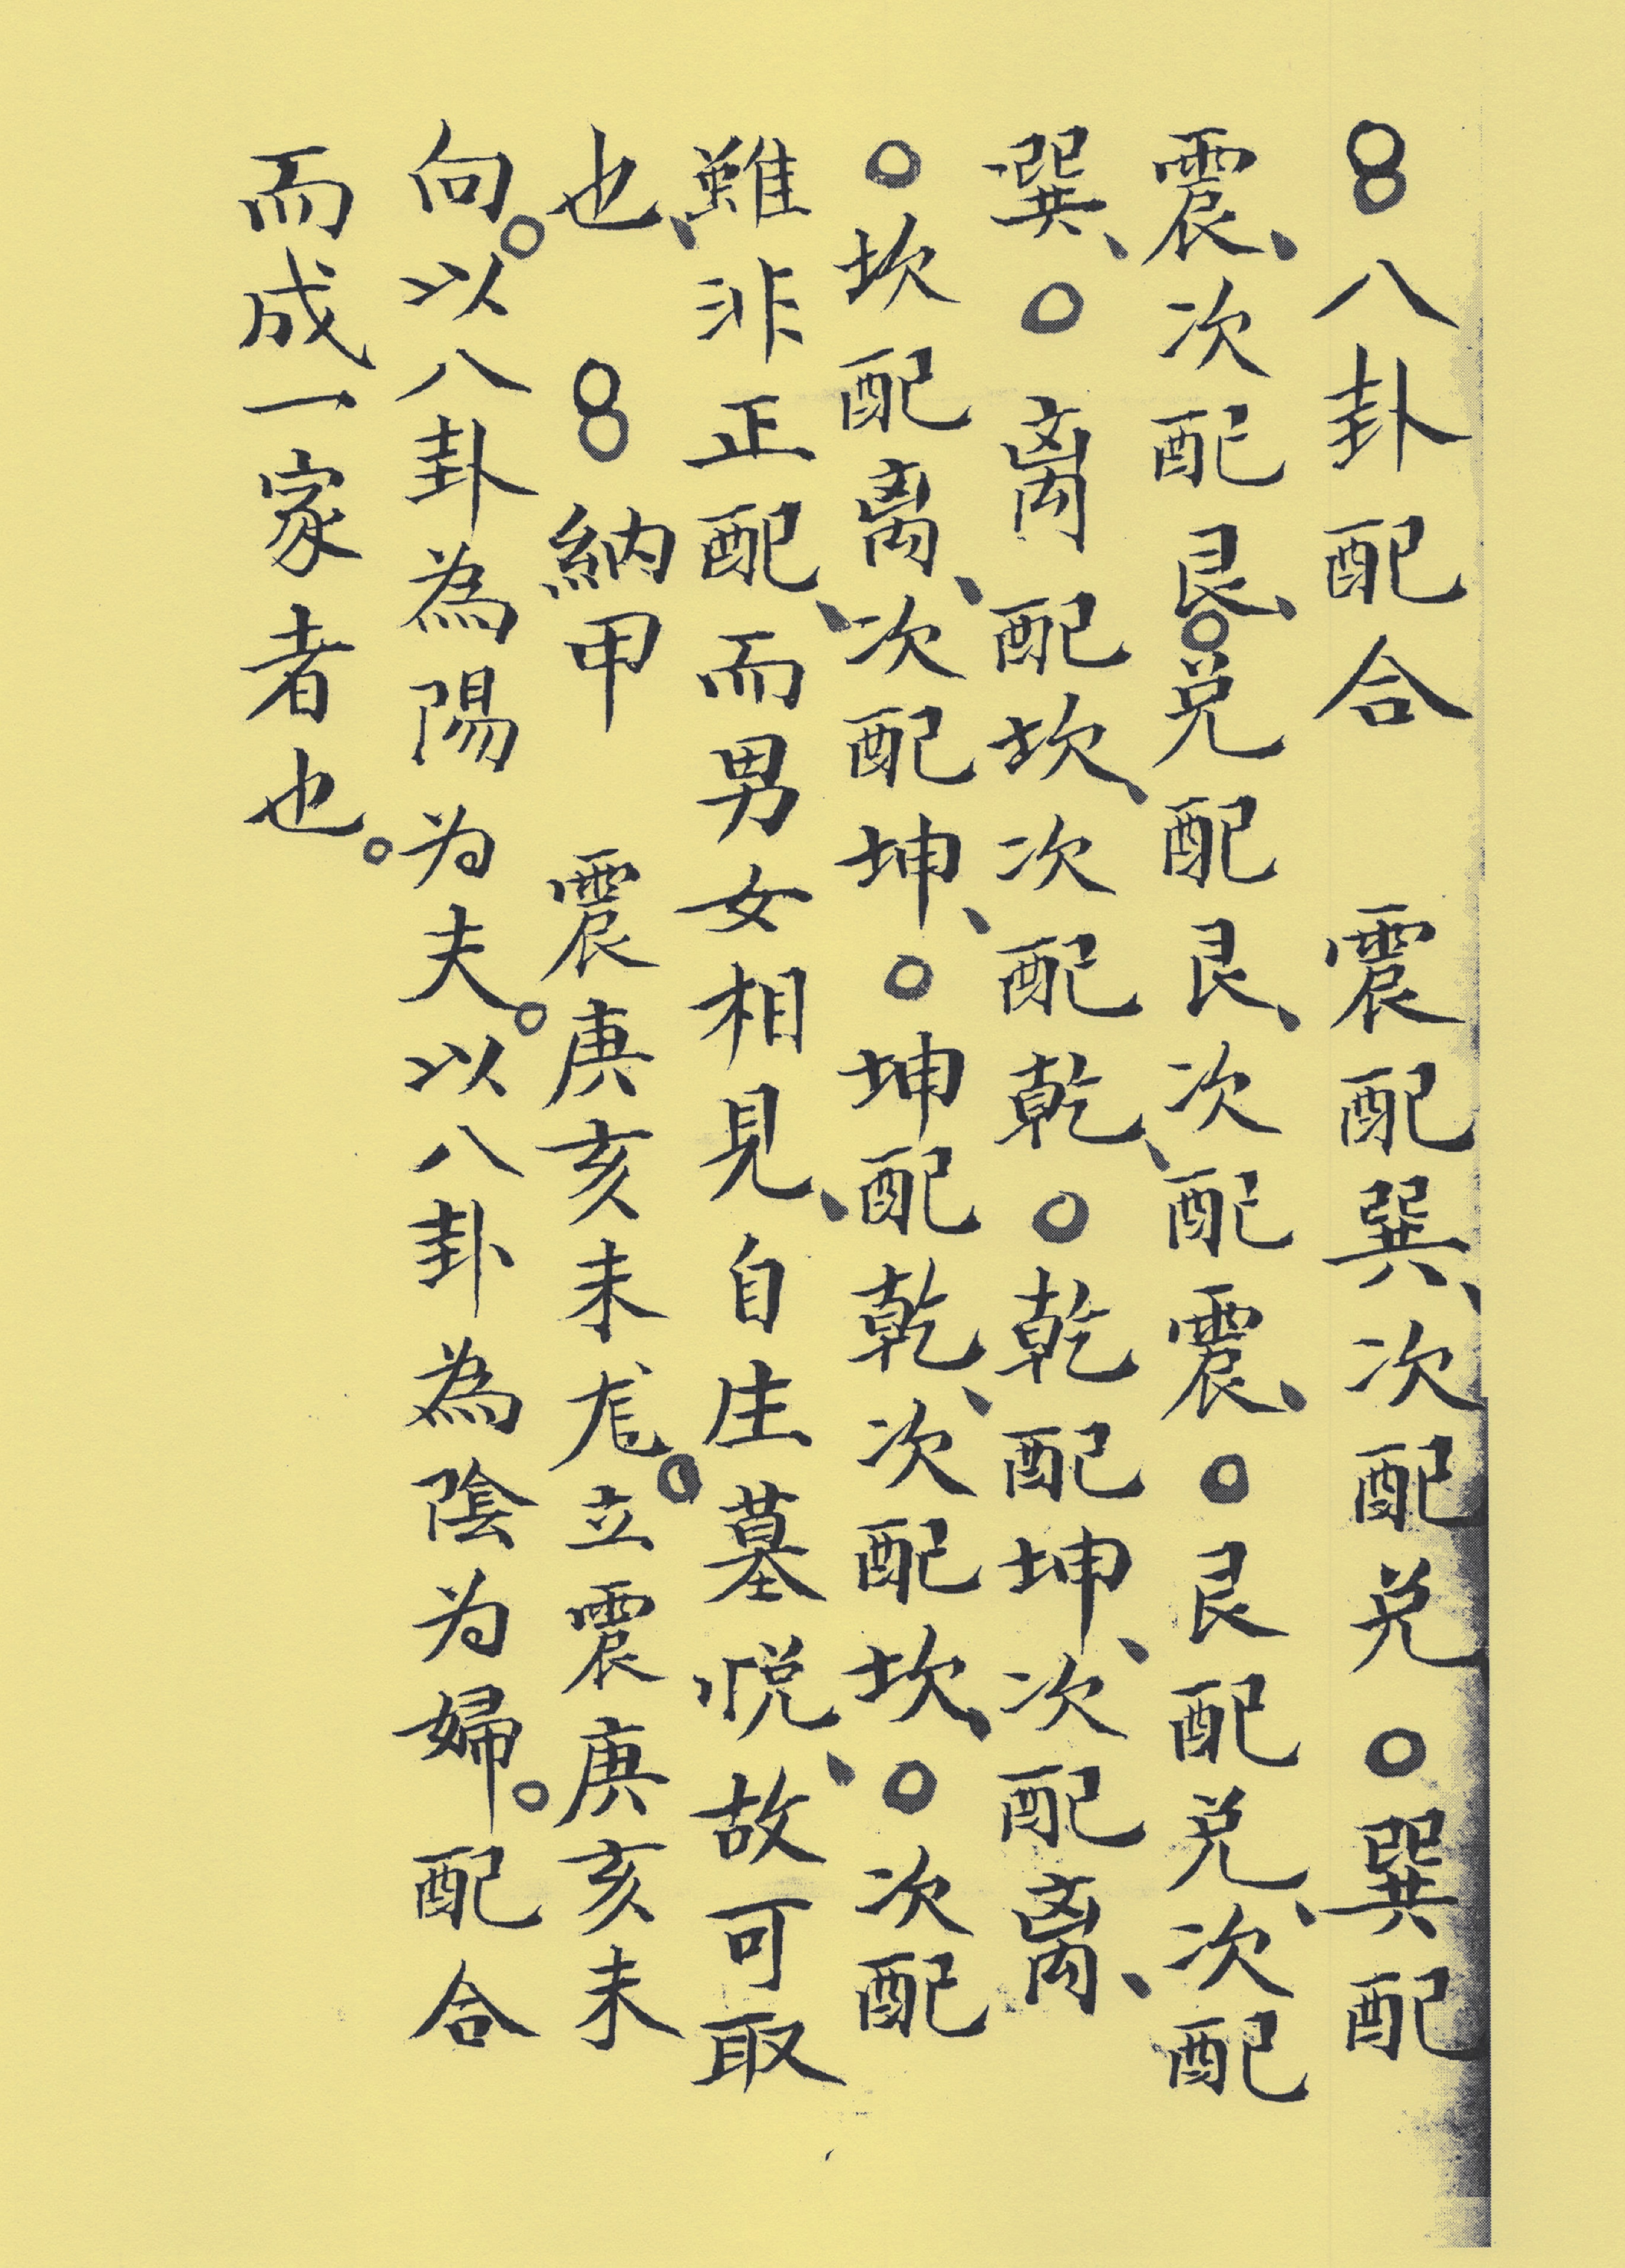 8八卦配合　震配巽、次配兑○巽配
震、次配艮、○兑配艮、次配震、○艮配兑、次配
巽、○离配坎、次配乾、○乾配坤、次配离、
○坎配离、次配坤、○坤配乾、次配坎、○次配
雖非正配、而男女相見、自生墓悦、故可取
也、8納甲　震庚亥未龙。立震庚亥未
向。以八卦為陽为夫。以八卦為陰为婦。配合
而成一家者也。